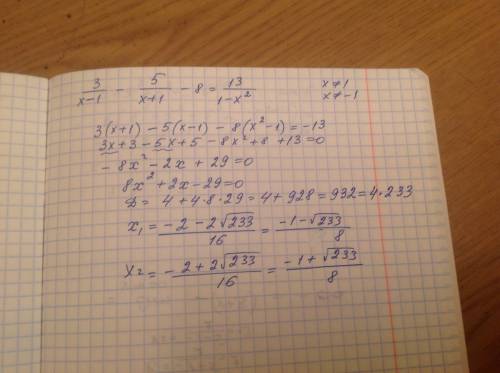 3/(x-1) - 5/(x+1) - 8 = 13/(1-x²)   x≠1
x≠-1
3(x+1) - 5(x-1) - 8(x²-1) = -13
3x+3-5x+5-8x²+8+13=0
-8x²-2x+29=0
8x²+2x-29=0
D= 4+4·8·29=4+928=932=4·233
x₁=(-2-2√233)/16=(-1-√233)/8
x₂=(-2+2√233)/16=(-1+√233)/8